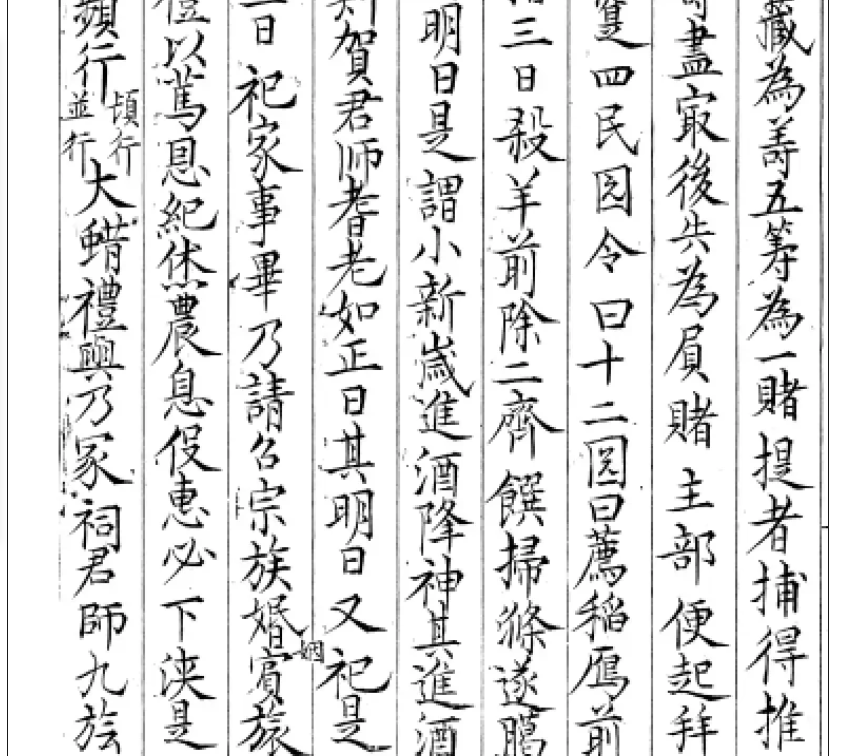 藏為夀五籌為一賭提者捕得推
盡寂後失為負賭主部便起拜
四民园令曰十二园曰薦稻鴈前
三日殺羊前除二齊饌掃滌遂臈
明日是謂小新歲進酒降神其進酒
賀君师耆老如正日其明日又祀是
日祀家事畢乃請召宗族婚姻賓旅
以篤恩紀休農息役惠必下浹是
行頃行並行大蜡禮興乃冢祠君師九族